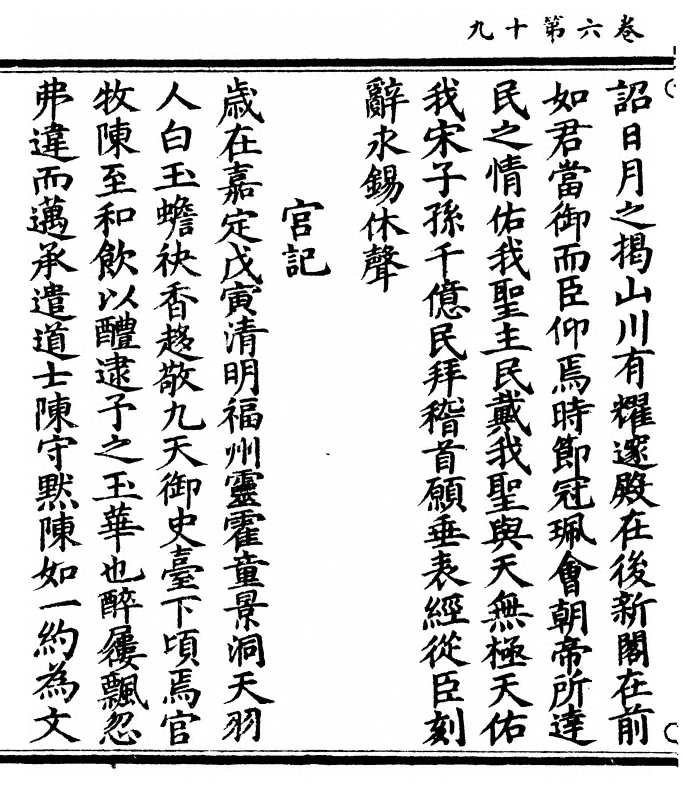 卷六第十九
詔日月之揭山川有耀邃殿在後新閣在前
如君當御而臣仰焉時節冠珮會朝帝所達
民之情佑我聖主民戴我聖與天無極天佑
我宋子孫千億民拜稽首願垂表經從臣刻
辭永錫休聲
宮記
歲在嘉定戊寅清明福州靈霍童景洞天羽
人白玉蟾袂香趍敬九天御史臺下頃焉官
牧陳至和飲以醴逮予之玉華也醉屨飄忽
弗違而邁承遣道士陳守默陳如一約為文